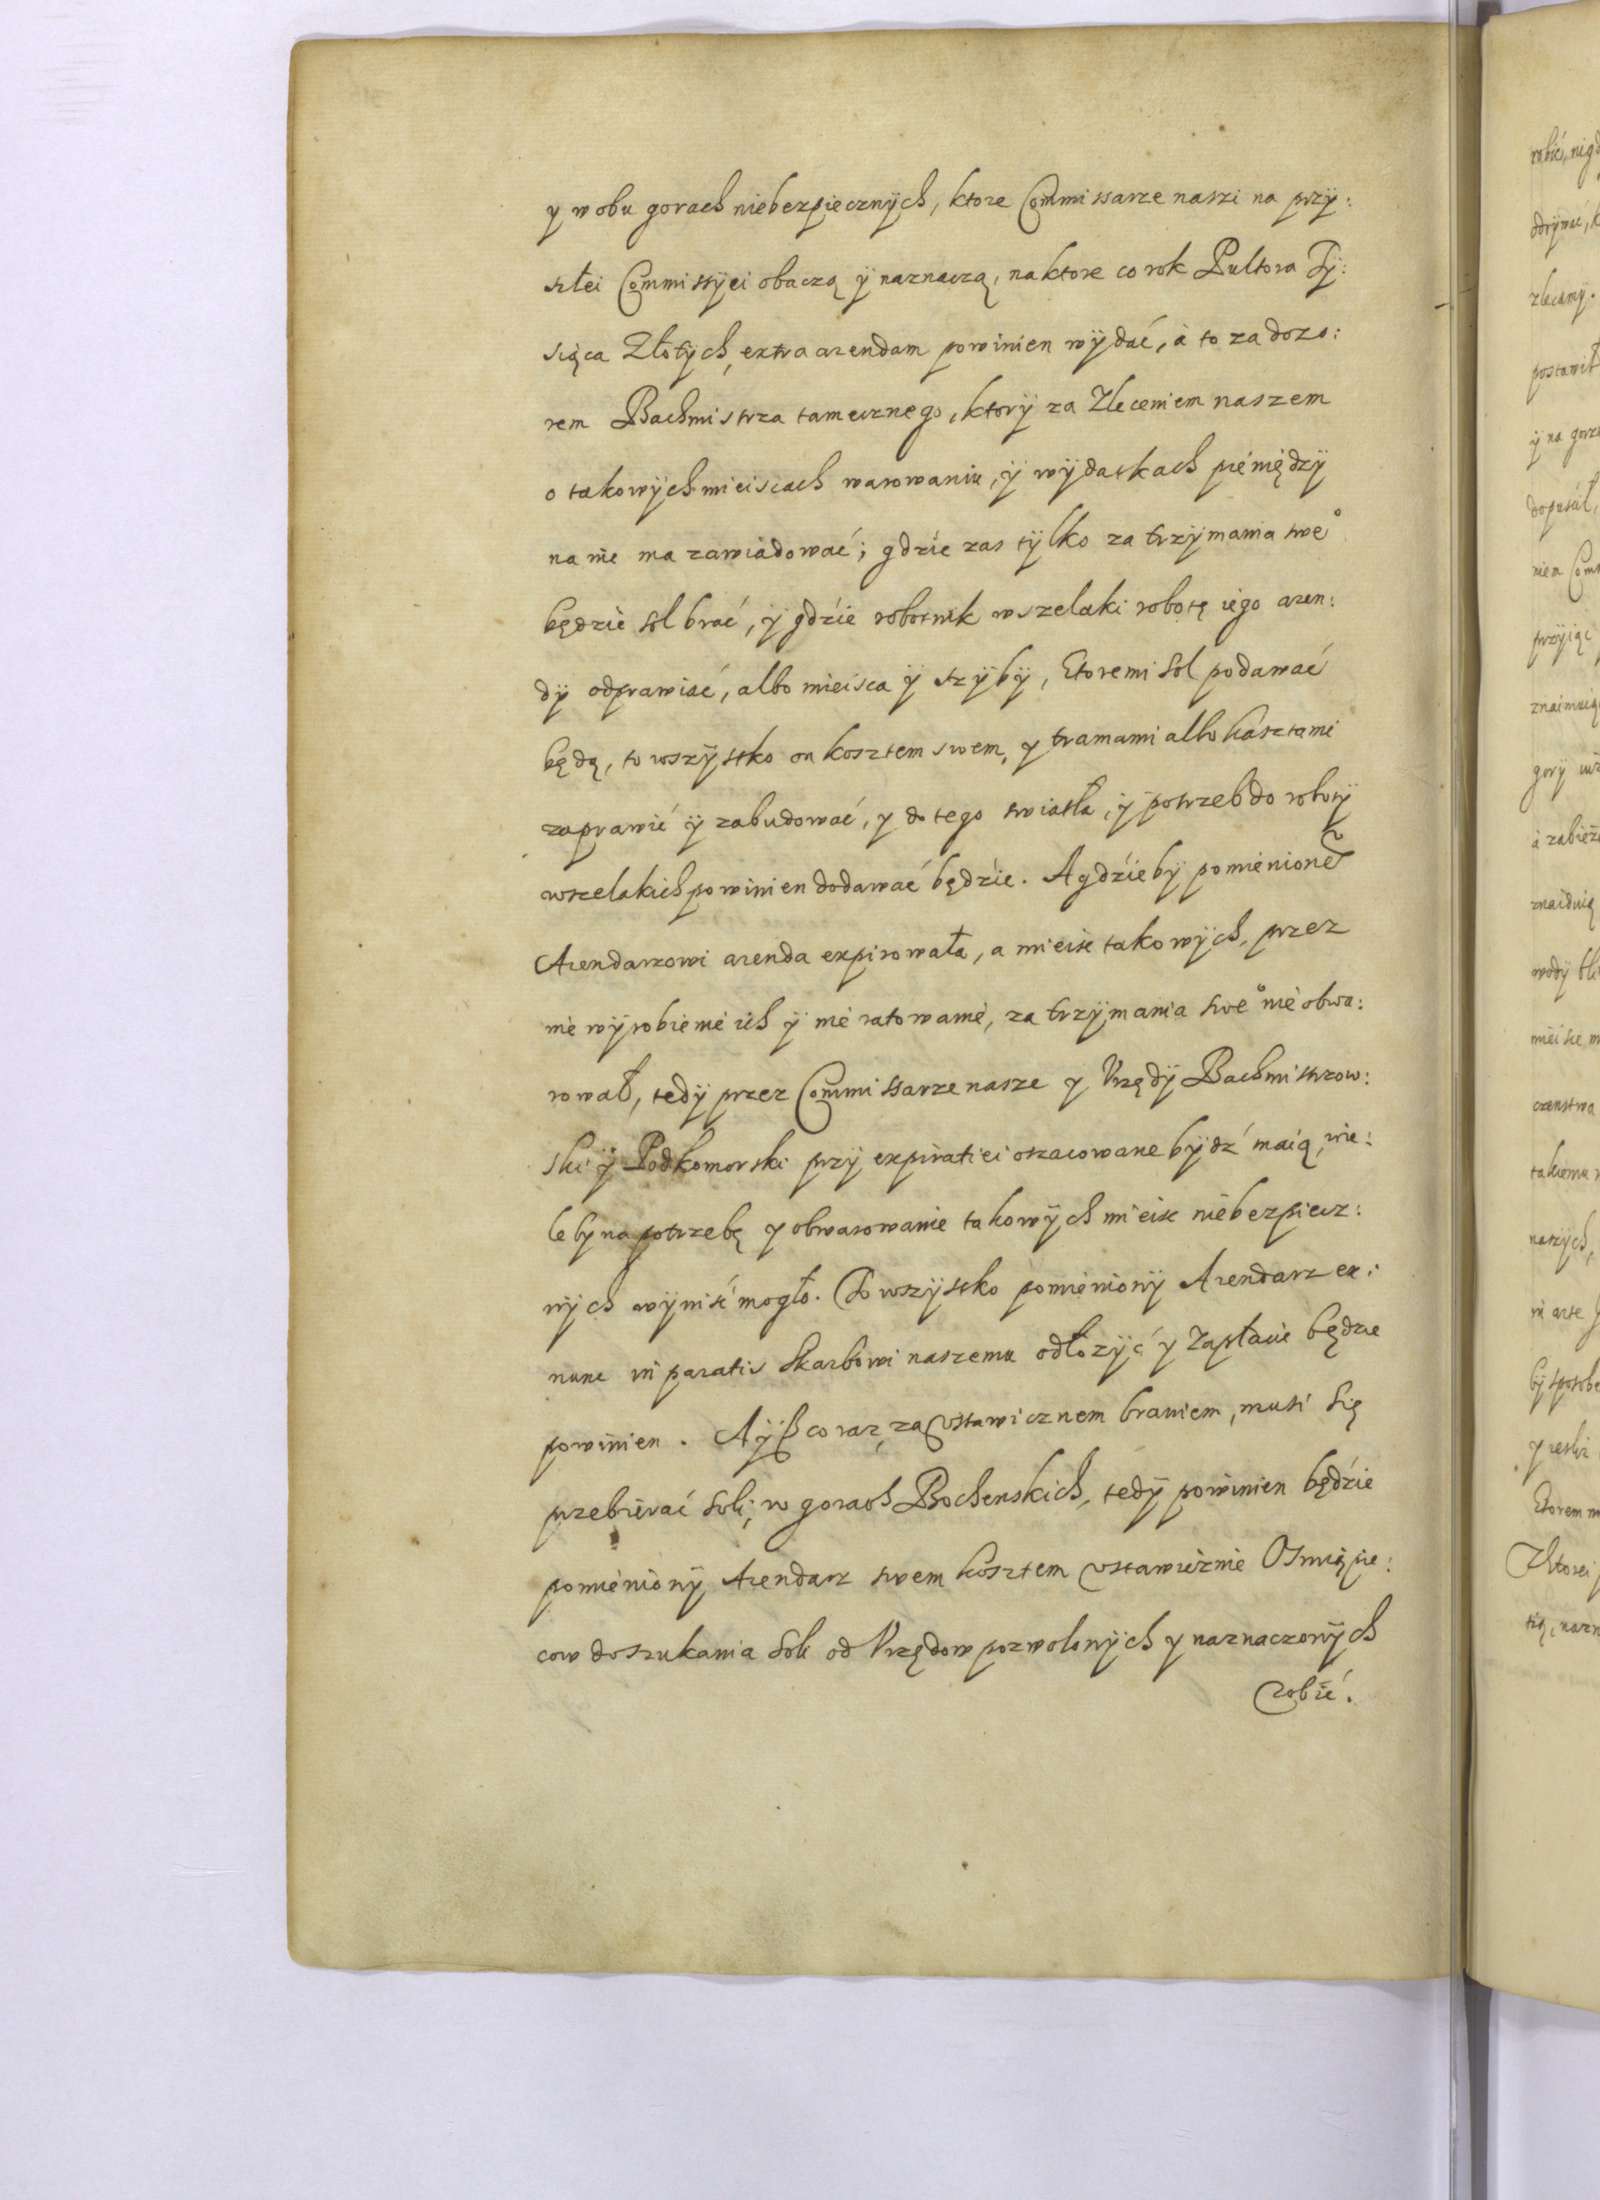 y w obu gorach niebezpiecznÿch, ktore Commissarze naszi na przÿ:
szłei Commissÿei obaczą ÿ naznaczą, na ktore co rok Pultora Tÿ:
siąca Złotÿch, extra arendam powinien wÿdać, à to za dozo:
rem Bachmistrza tamecznego, ktorÿ za Zleceniem naszem
o takowÿch mieiscach warowaniu, ÿ wÿdatkach pieniędzÿ
na nie ma zawiadować; gdzie zas tÿlko za trzÿmania sweº
będzie sol brać, ÿ gdzie robotnik wszelaki robotę iego aren:
dÿ odprawiać, albo mieisca ÿ szÿbÿ, ktoremi sol podawać
będą, to wszÿstko on kosztem swem, y tramami albo kásztami
zaprawić ÿ zabudować, y do tego swiatła, ÿ potrzeb do robotÿ
wszelakich powinien dodawać będzie. A gdzie bÿ pomienione~
Arendarzowi arenda expirowała, a mieisc takowÿch, przez
nie wÿrobienie ich ÿ nie ratowanie, za trzÿmania sweº nie obwa:
rował, tedÿ przez Commissarze nasze y Vrzędÿ Bachmistrzow:
ski ÿ Podkomorski przÿ expiratiei oszacowane bÿdź maią, wie:
le by na potrzebę y obwarowanie takowÿch mieisc niebezpiecz:
nÿch wÿniść mogło. To wszÿstko pomienionÿ Arendarz ex:
nunc in paratis skarbowi naszemu odłozÿć y Zapłacić będzie
powinien. A ÿß co raz, za vstawicznem braniem, musi się
przebierać soli, w gorach Bochenskich, tedÿ powinien będzie
pomienionÿ Arendarz swem kosztem vstawicznie Osmiępie:
cow do szukania soli od Vrzędow pozwolonÿch y naznaczonÿch
robić.